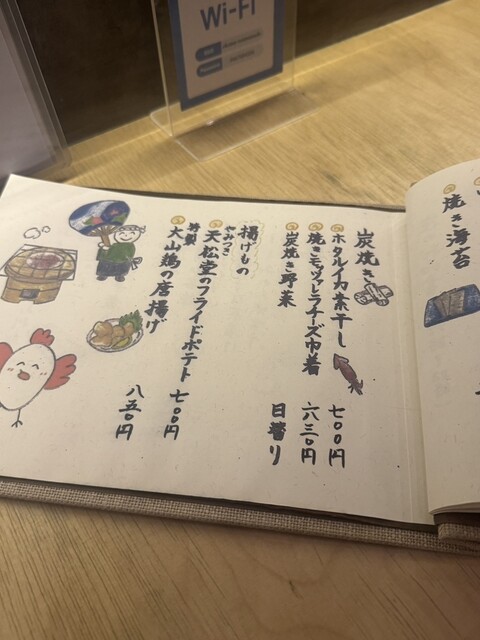 Wi-Fi
焼き海苔
炭焼き
ホタルイカ素干し 七〇〇円
焼きモッツァレラチーズ巾着 六三〇円
炭焼き野菜 日替り
揚げもの
やみつき
天松堂のフライドポテト 七〇〇円
特製
大山鶏の唐揚げ 八五〇円